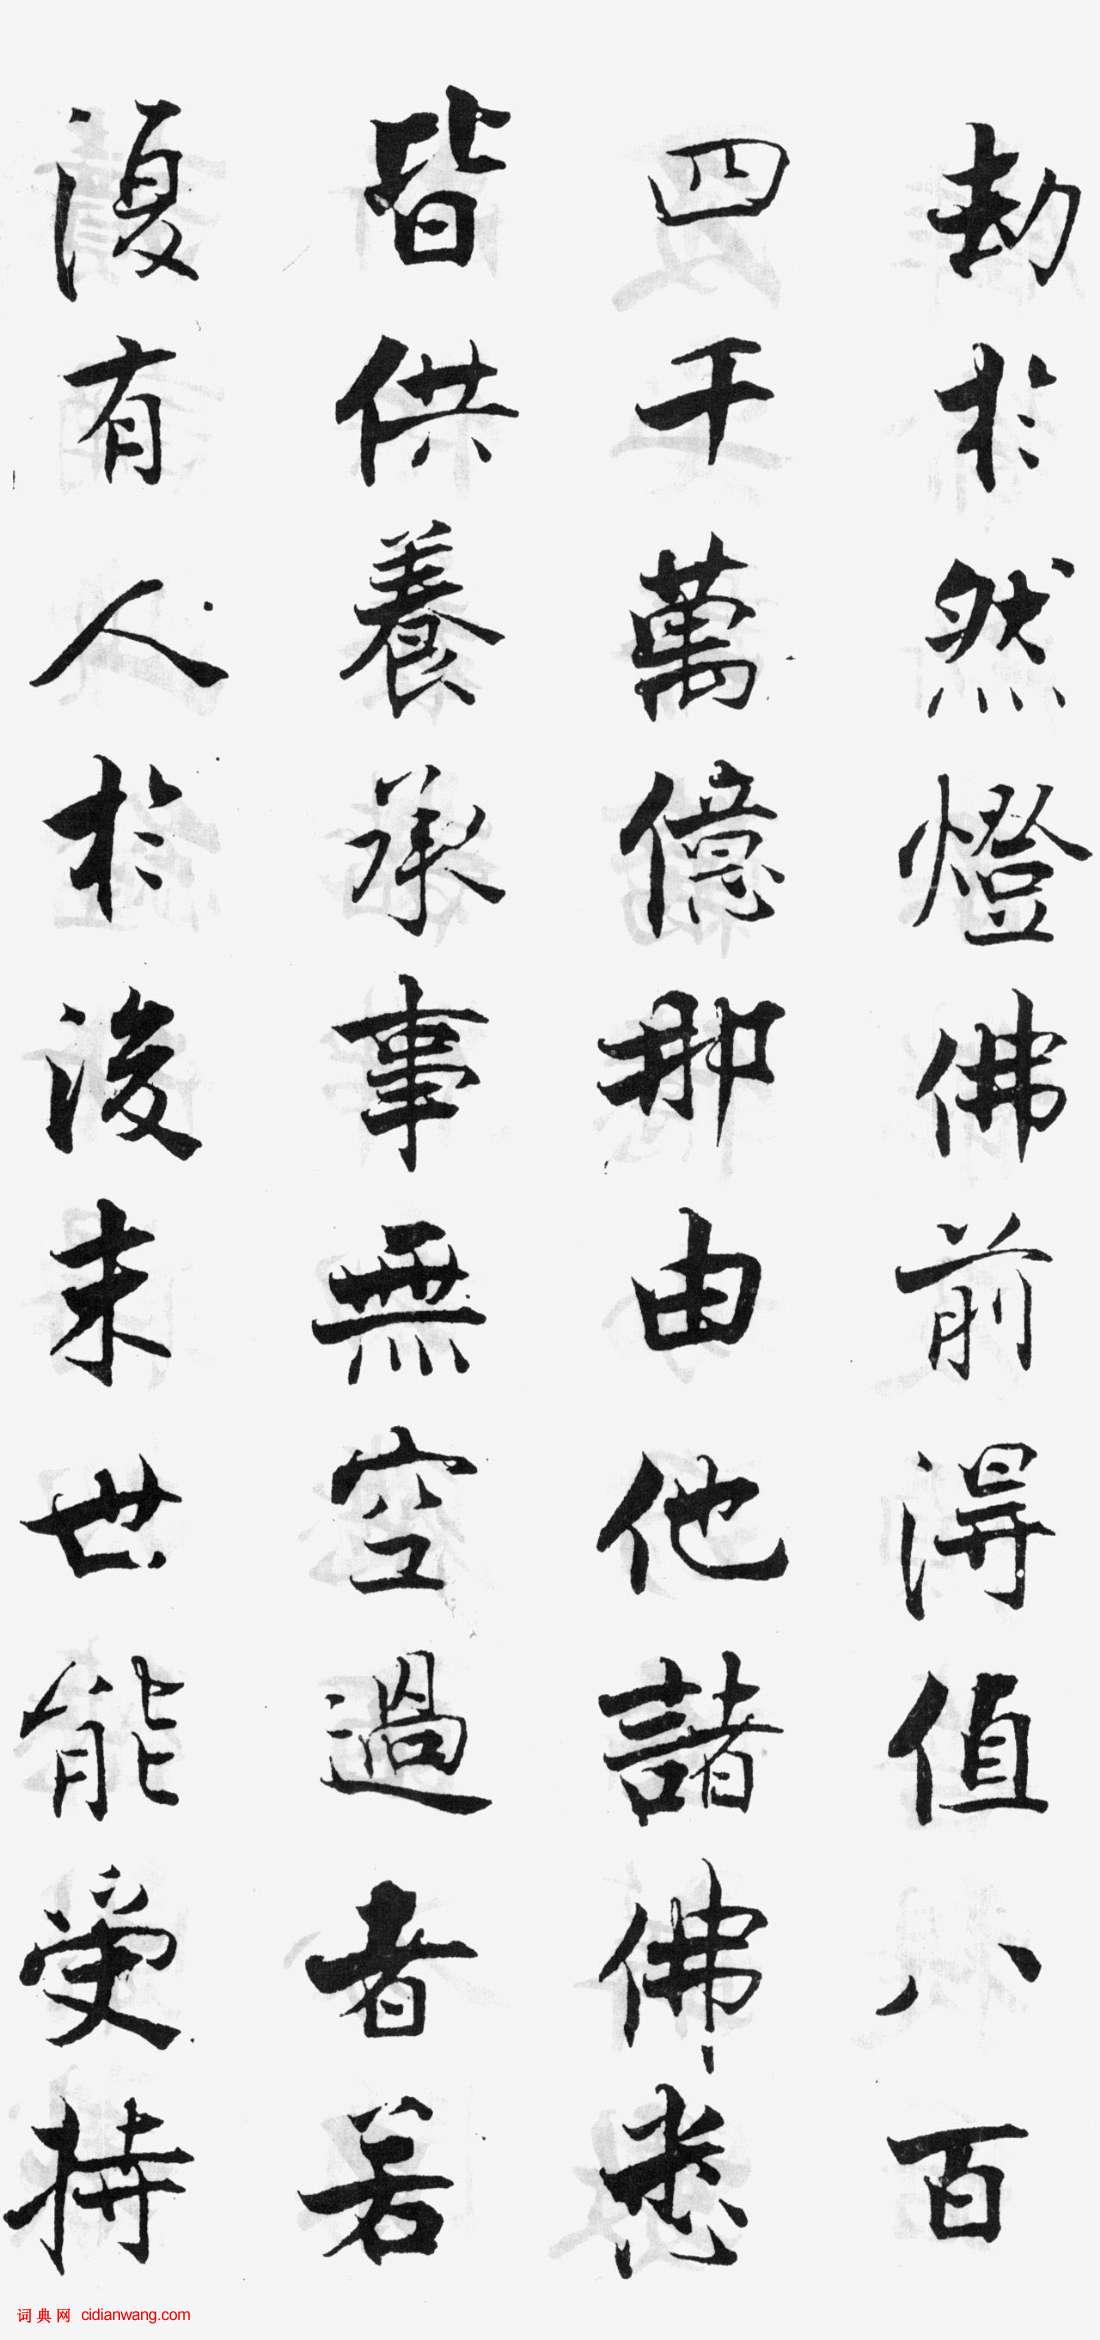 劫於然燈佛前得值八百
四千萬億那由他諸佛悉
皆供養承事無空過者若
復有人於後末世能受持
词典网 cidianwang.com